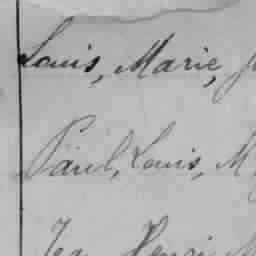 Louis, Marie, J
Paul, Louis, M
Jea Henri M